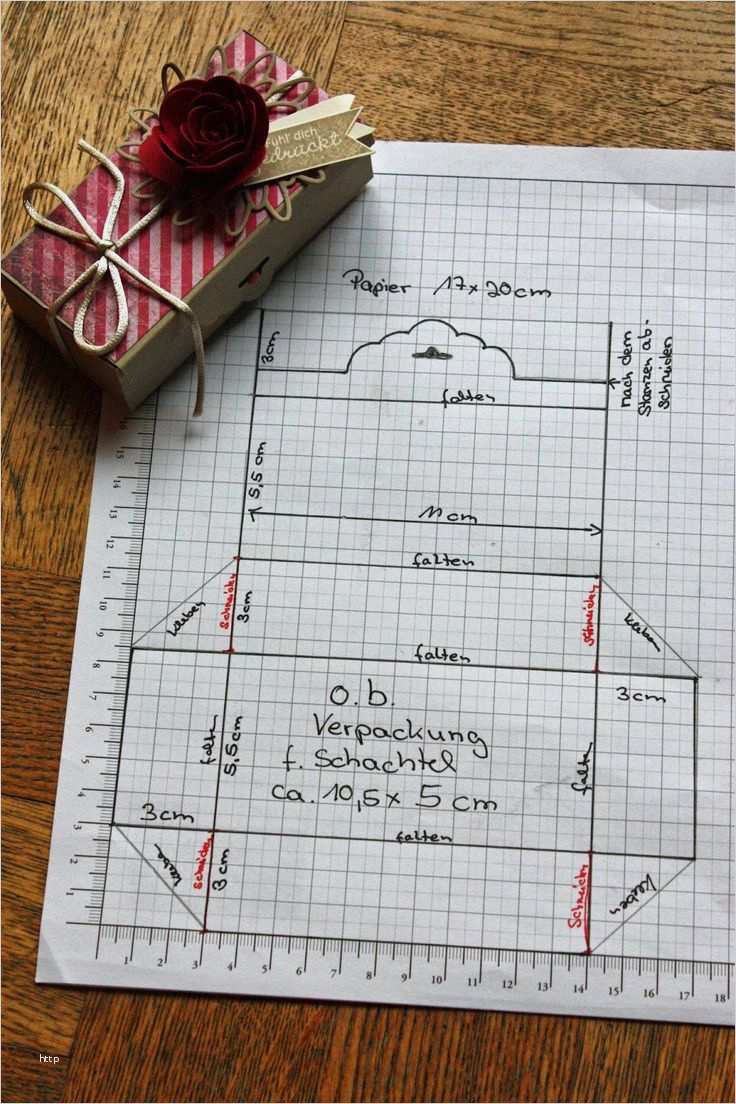 fühl dich
gedrückt
Papier 17 x 20 cm
3cm
nach dem
Stanzen ab-
schneiden
falten
5,5 cm
11 cm
falten
kleben
schneiden
3cm
schneiden
kleben
falten
3cm
o.b.
Verpackung
f. Schachtel
ca. 10,5 x 5 cm
falten
5,5cm
falten
3cm
falten
kleben
schneiden
3cm
schneiden
kleben
16
15
14
13
12
11
10
9
8
7
6
5
4
3
2
1
1 2 3 4 5 6 7 8 9 10 11 12 13 14 15 16 17 18
http